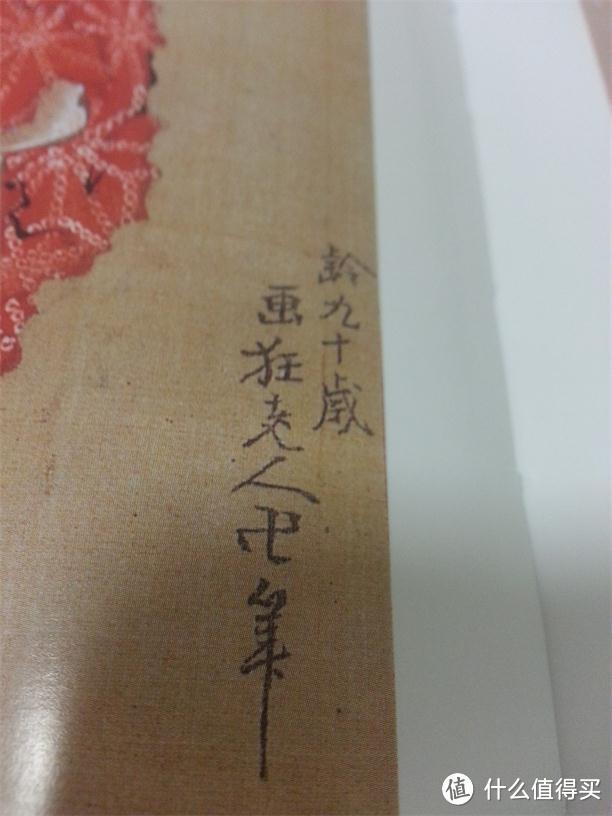 齢九十歳
画狂老人卍筆
值 什么值得买